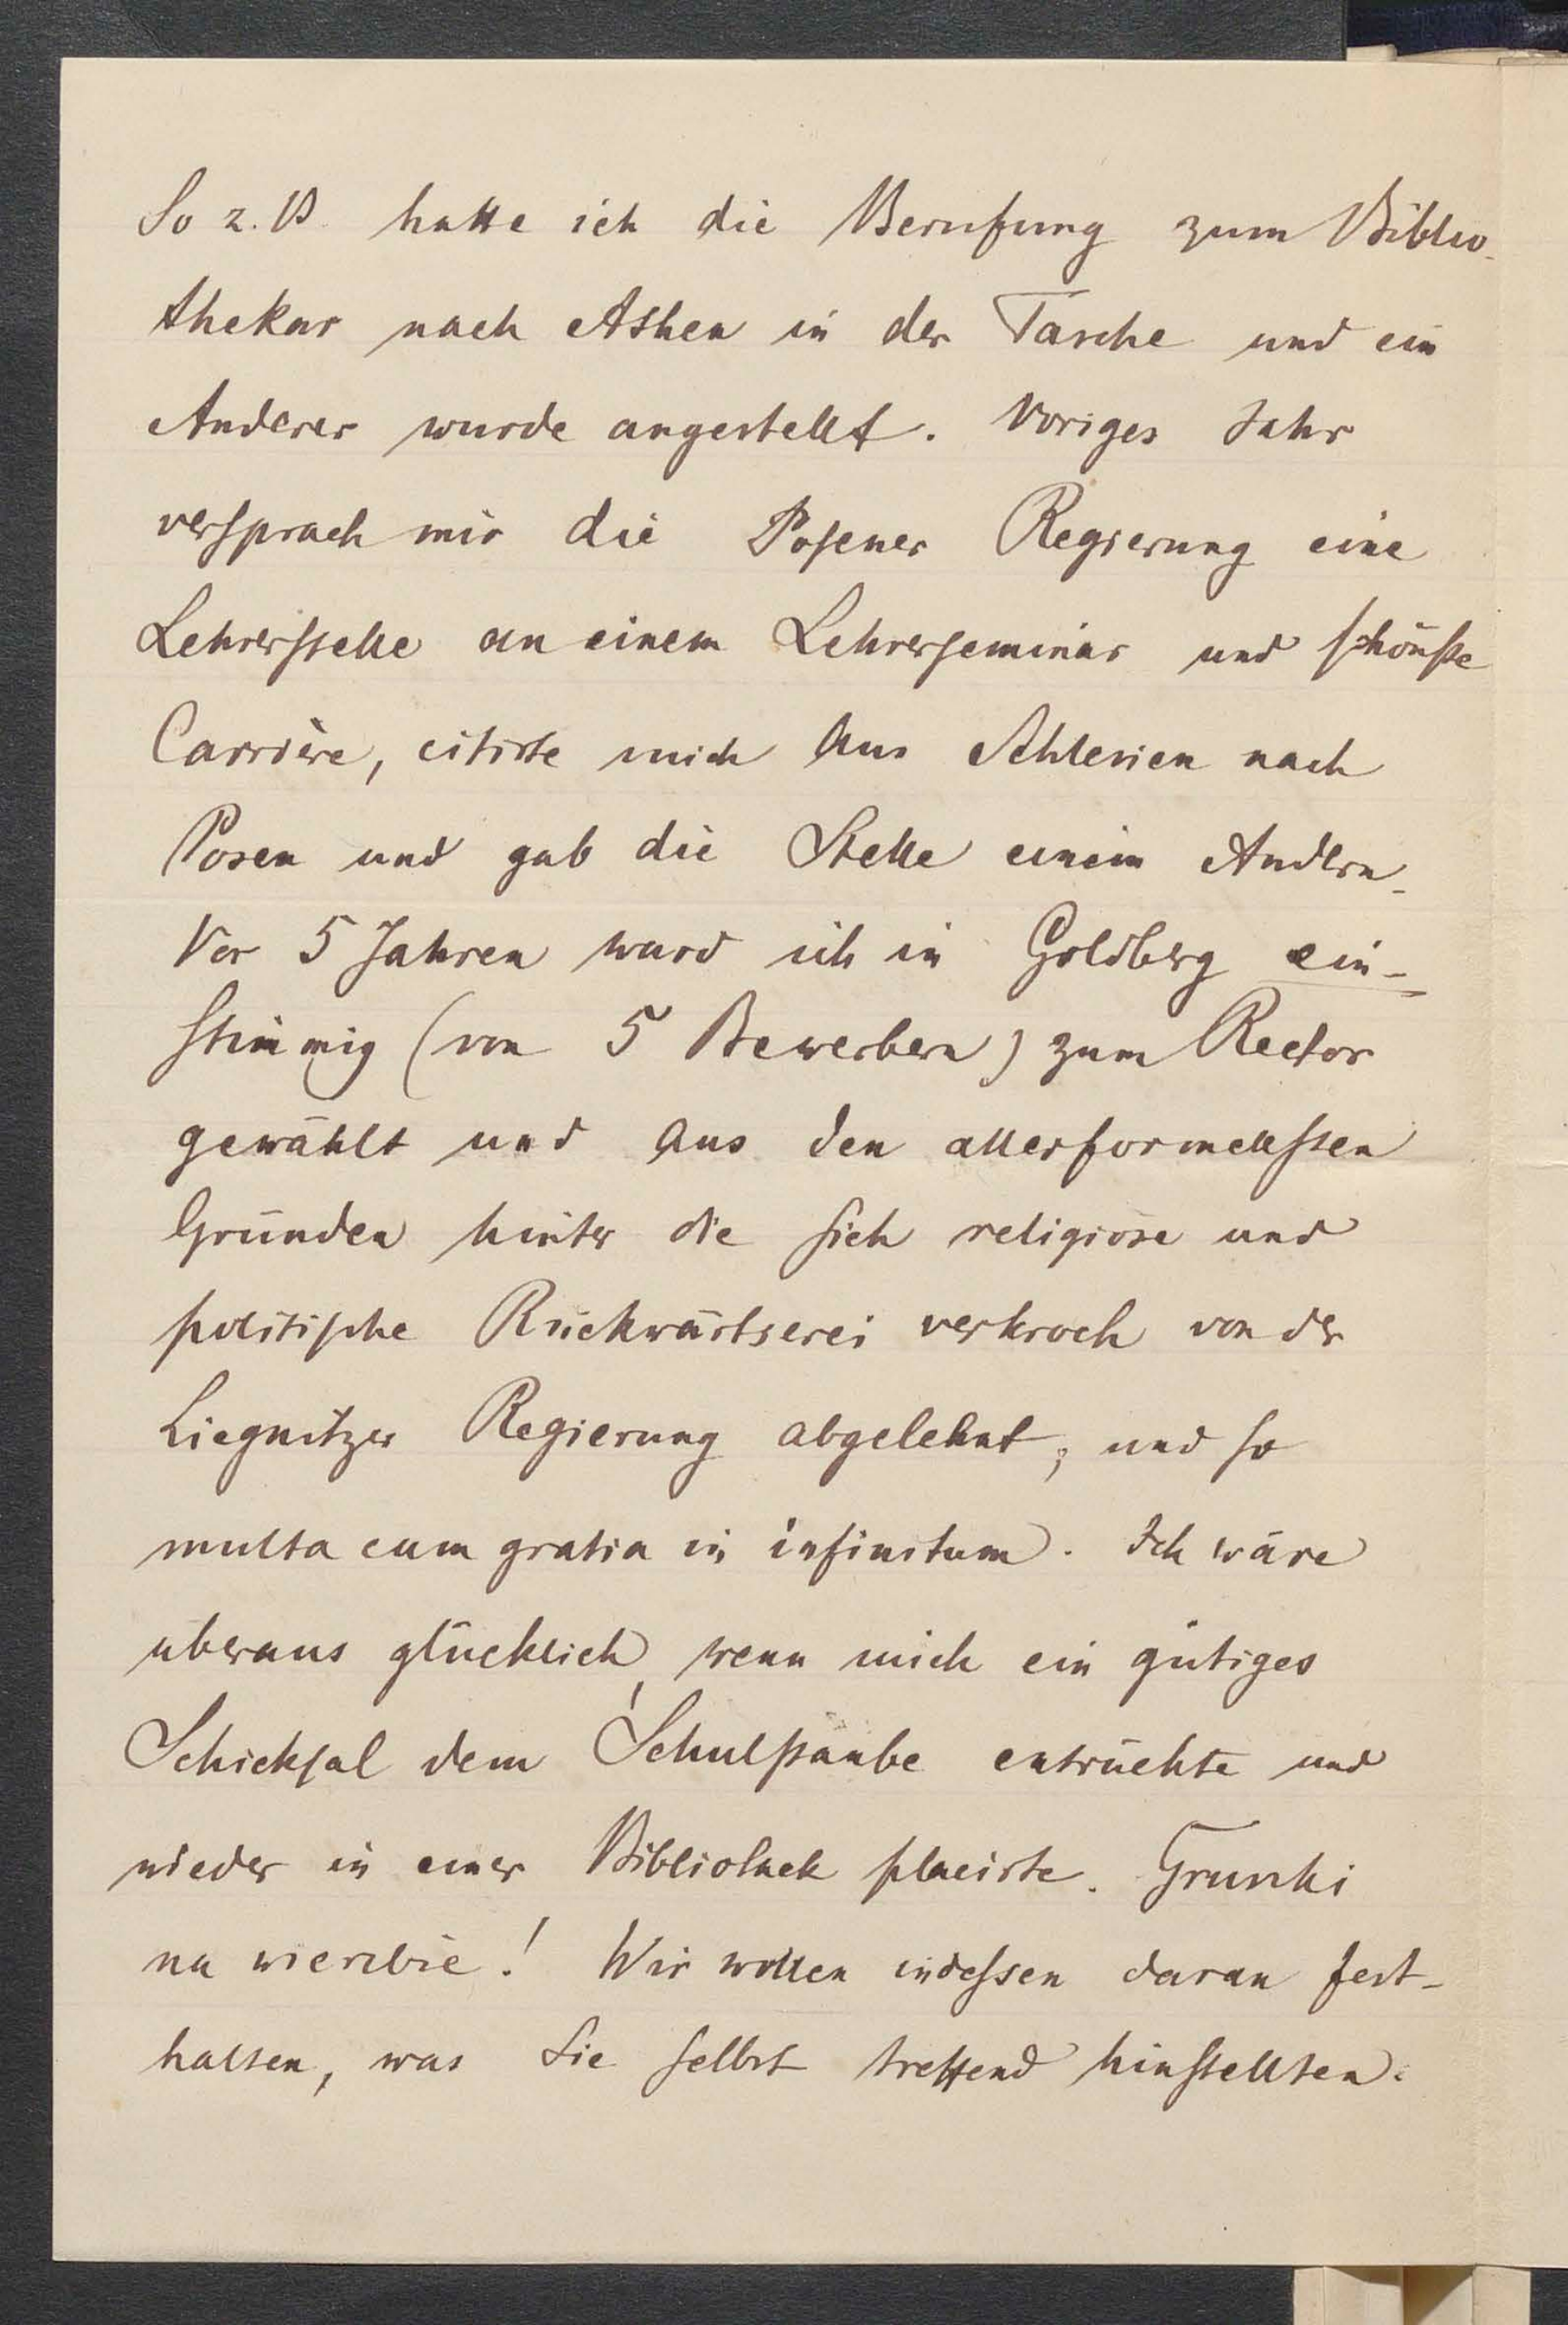 So z. B. hatte ich die Berufung zum Biblio-
thekar nach Athen in der Tasche und ein
Anderer wurde angestellt. Voriges Jahr
versprach mir die Posener Regierung eine
Lehrerstelle an einem Lehrerseminar und schönste
Carrière, citirte mich aus Schlesien nach
Posen und gab die Stelle einem Andern.
Vor 5 Jahren ward ich in Goldberg ein-
stimmig (von 5 Bewerbern) zum Rector
gewählt und aus den allerformellsten
Gründen hinter die sich religiöse und
politische Rückwärtserei verkroch von der
Liegnitzer Regierung abgelehnt; und so
multa cum gratia in infinitum. Ich wäre
überaus glücklich, wenn mich ein gütiges
Schicksal dem Schulstaube entrückte und
wieder in einer Bibliothek placirte. Gruszki
na wierzbie! Wir wollen indessen daran fest-
halten, was Sie selbst treffend hinstellten: